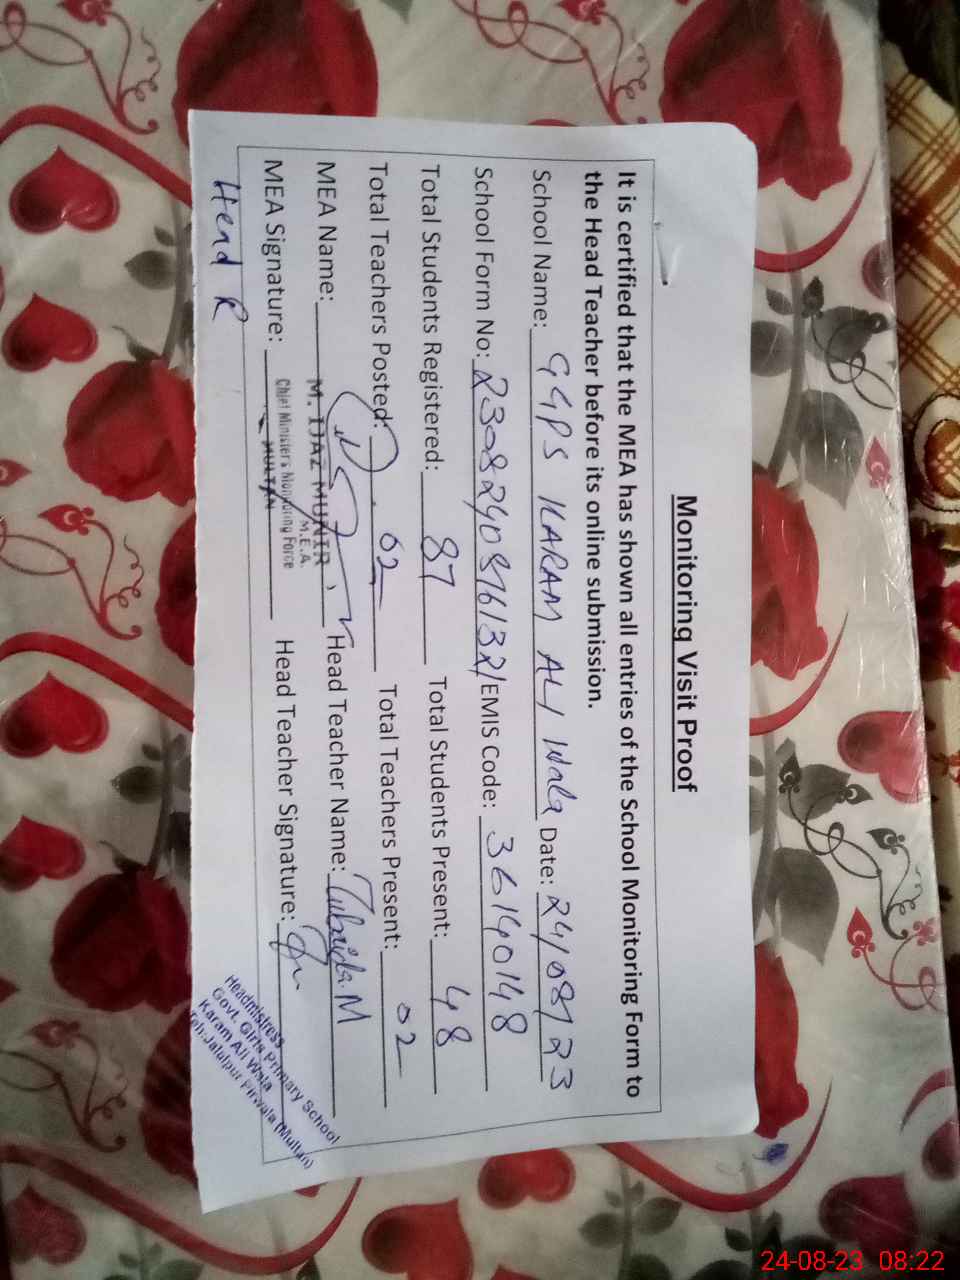 Monitoring Visit Proof
It is certified that the MEA has shown all entries of the School Monitoring Form to
the Head Teacher before its online submission.
School Name: GGPS KARAM ALI Wala Date: 24/08/23
School Form No: EMIS Code: 36140148
Total Students Registered: 87 Total Students Present: 48
Total Teachers Posted: 02 Total Teachers Present: 02
MEA Name: M. IJAZ MUNIR Head Teacher Name: Zubaida.M
M.E.A.
Chief Minister's Monitoring Force
MULTAN
MEA Signature: Head Teacher Signature:
Head R
Headmistress
Govt. Girls Primary School
Karam Ali Wala
Teh: Jalalpur Pirwala (Multan)
24-08-23 08:22